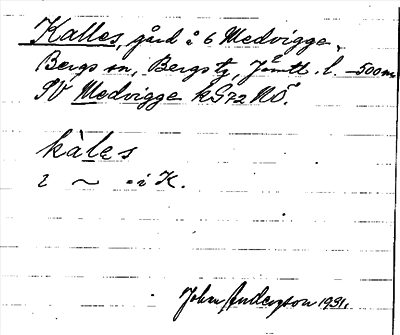 Kalles, gård å 6 Medvigge,
Bergs sn, Bergs tg, Jämtl. l. –500m
SV Medvigge kS72NÖ.
kàles
i ~ · i K.
John Anderzson 1931.